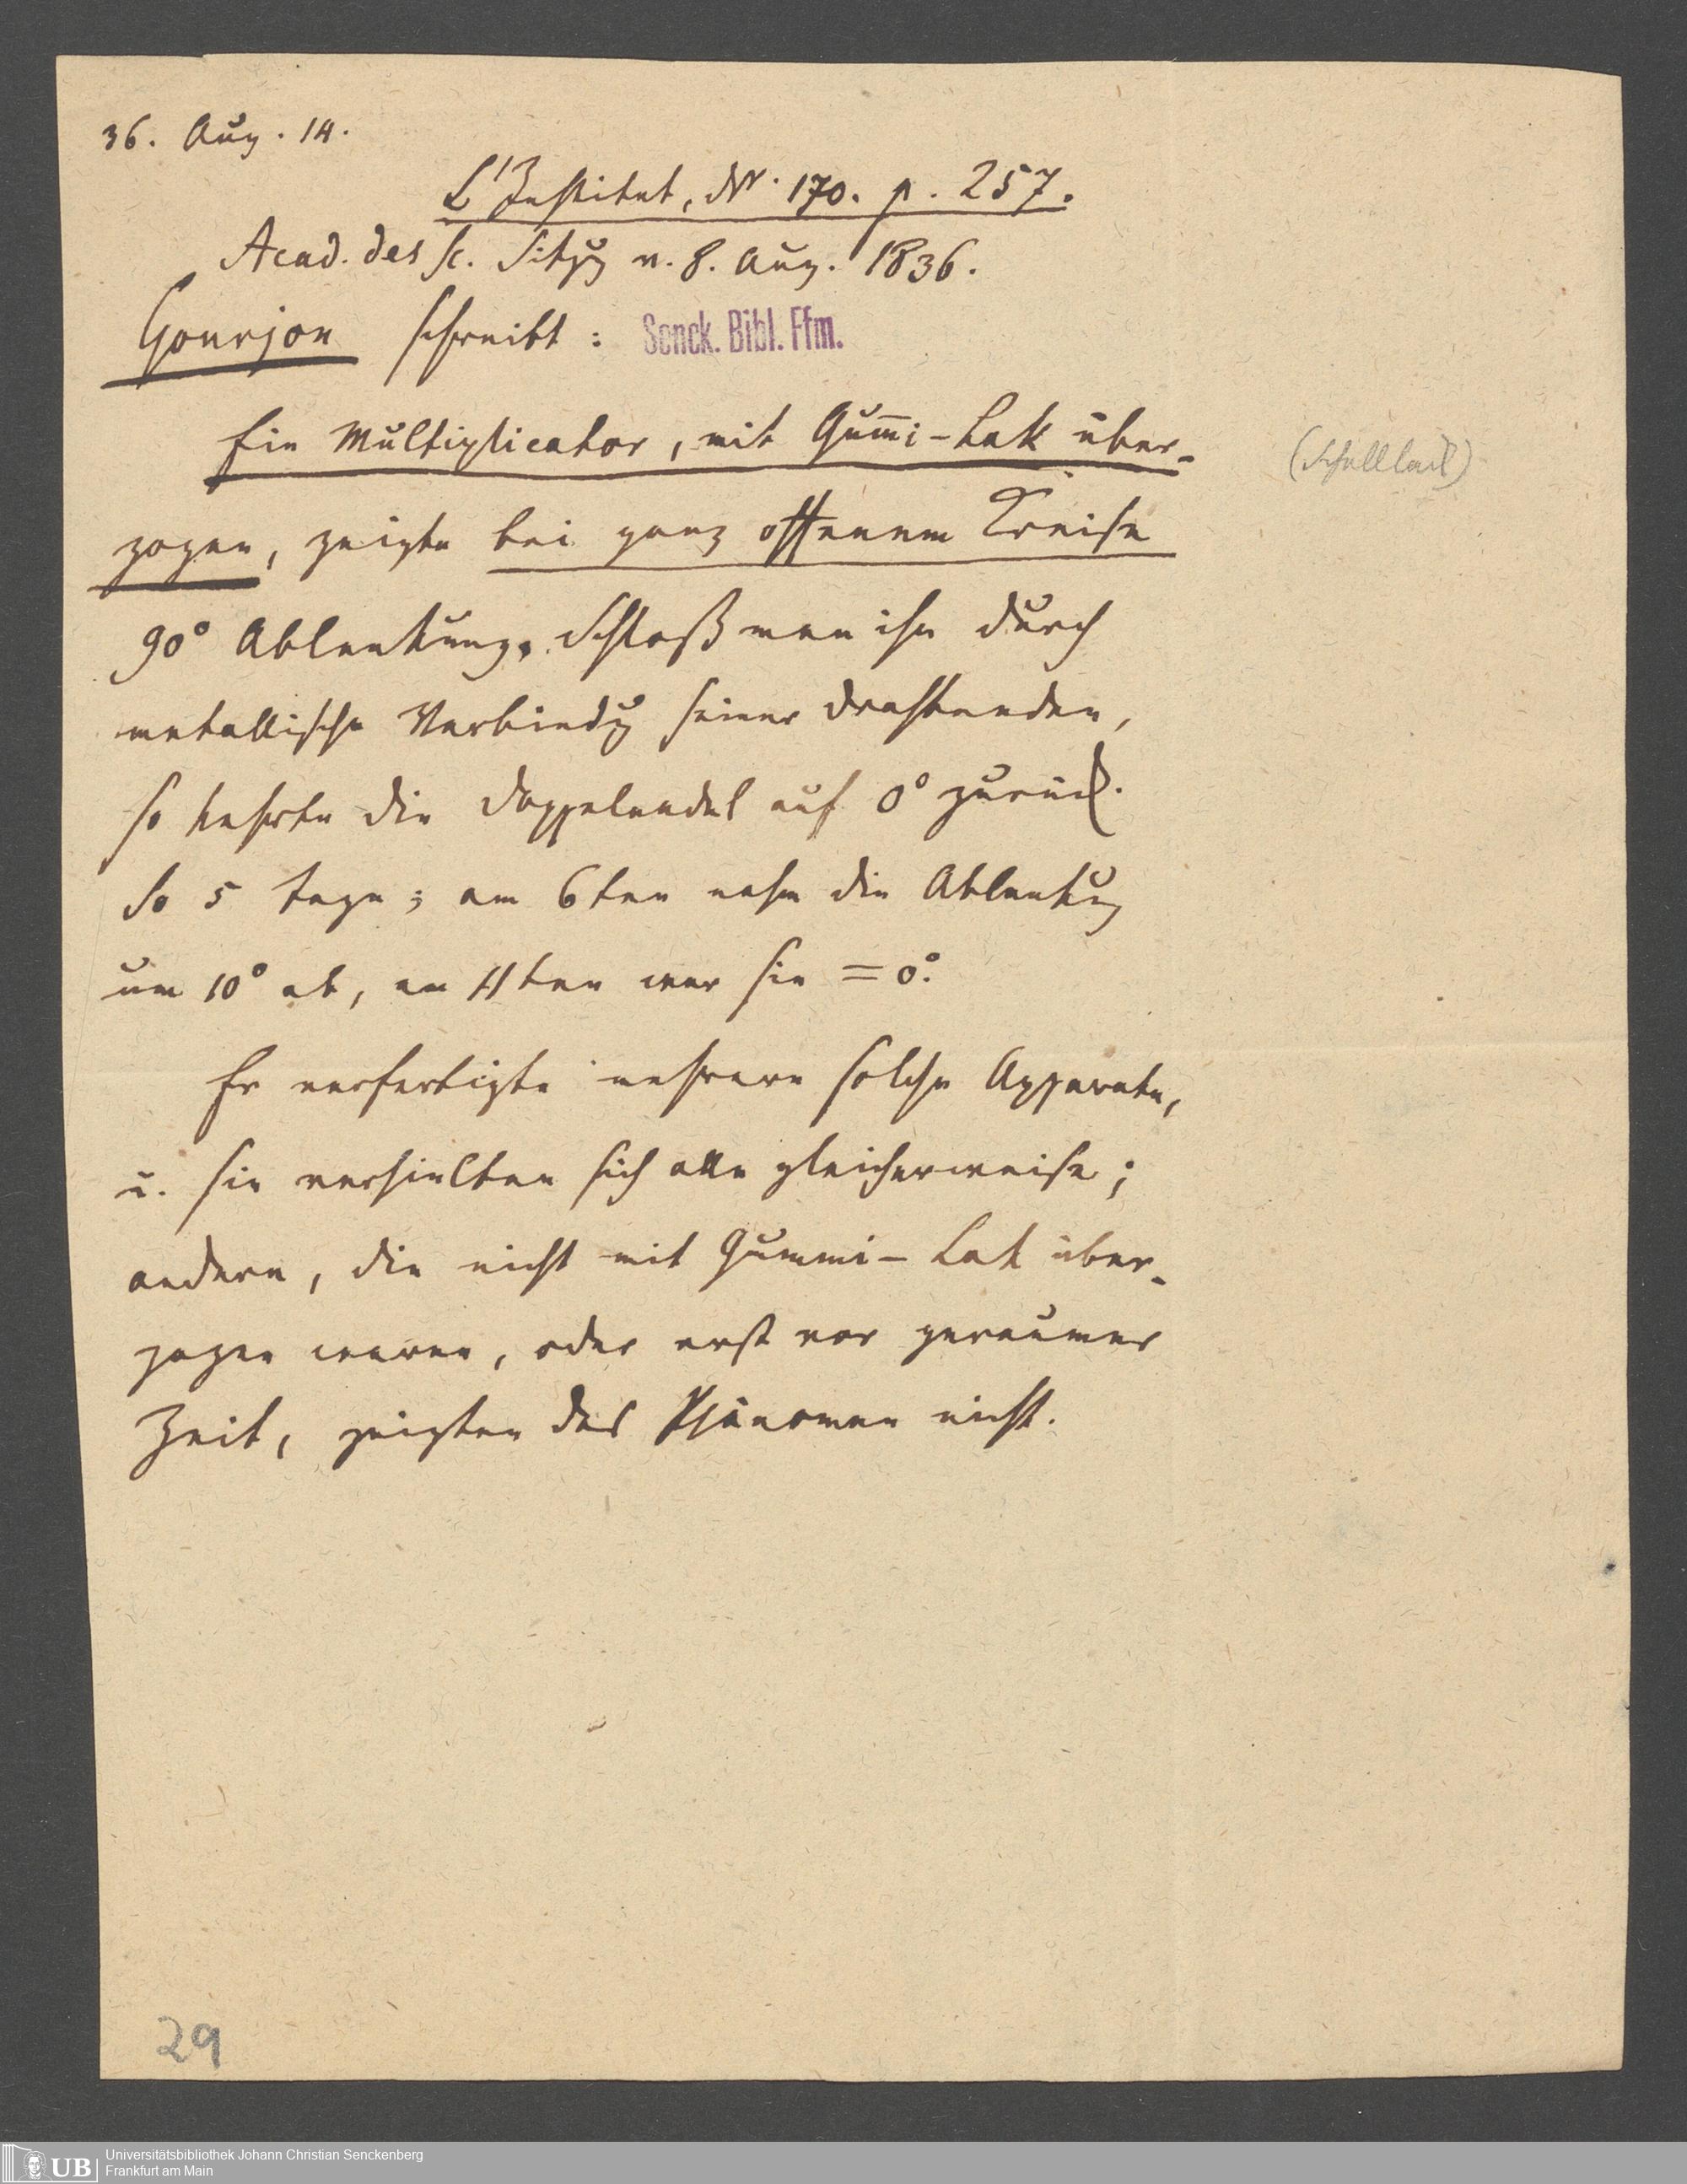 36. Aug. 14.
L'Institut, Nr. 170. p. 257.
Acad. des Sc. Sitzg v. 8. Aug. 1836.
Gourjon schreibt:
Senck. Bibl. Ffm.
Ein Multiplicator, mit Gum̅i-Lak über-
(Schellack)
zogen, zeigte bei ganz offenem Kreise
90° Ablenkung. Schloß man ihn durch
metallische Verbindg seiner Drahtenden,
so kehrte die Doppelnadel auf 0° zurück.
So 5 Tage; am 6ten nahm die Ablenkug
um 10° ab, am 11ten war sie = 0°.
Er verfertigte mehrere solche Apparate,
u. sie verhielten sich alle gleicherweise;
andere, die nicht mit Gummi-Lak über-
zogen waren, oder erst vor geraumer
Zeit, zeigten das Phänomen nicht.
29
UB
Universitätsbibliothek Johann Christian Senckenberg
Frankfurt am Main